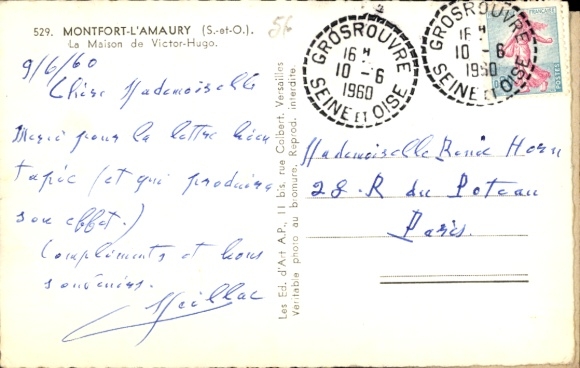 529. MONTFORT-L'AMAURY (S.-et-O.).
La Maison de Victor-Hugo.
56
9/6/60
Chère Mademoiselle
Merci pour la lettre bien
tapée (et qui produira
son effet.)
Compliments et bons
souvenirs.
Meillac
Les Ed. d'Art A.P., 11 bis, rue Colbert, Versailles
Véritable photo au bromure. Reprod. interdite
GROSROUVRE
16 H
10 - 6
1960
SEINE ET OISE
GROSROUVRE
16 H
10 - 6
1960
SEINE ET OISE
FRANÇAISE
POSTES
Mademoiselle Renée Horn
28 R du Poteau
Paris.